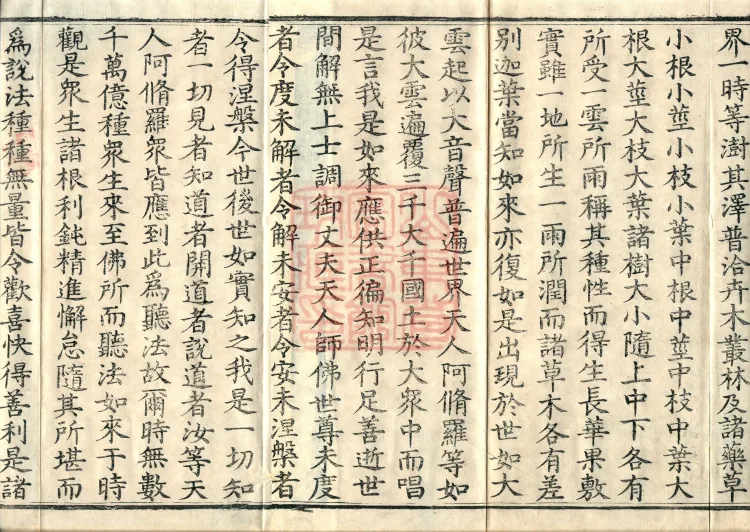 界一時等澍其澤普洽卉木叢林及諸藥草
小根小莖小枝小葉中根中莖中枝中葉大
根大莖大枝大葉諸樹大小隨上中下各有
所受一雲所雨稱其種性而得生長華果敷
實雖一地所生一雨所潤而諸草木各有差
別迦葉當知如來亦復如是出現於世如大
雲起以大音聲普遍世界天人阿脩羅等如
彼大雲遍覆三千大千國土於大眾中而唱
是言我是如來應供正徧知明行足善逝世
間解無上士調御丈夫天人師佛世尊未度
者令度未解者令解未安者令安未涅槃者
令得涅槃今世後世如實知之我是一切知
者一切見者知道者開道者說道者汝等天
人阿脩羅眾皆應到此為聽法故爾時無數
千萬億種眾生來至佛所而聽法如來于時
觀是眾生諸根利鈍精進懈怠隨其所堪而
為說法種種無量皆令歡喜快得善利是諸